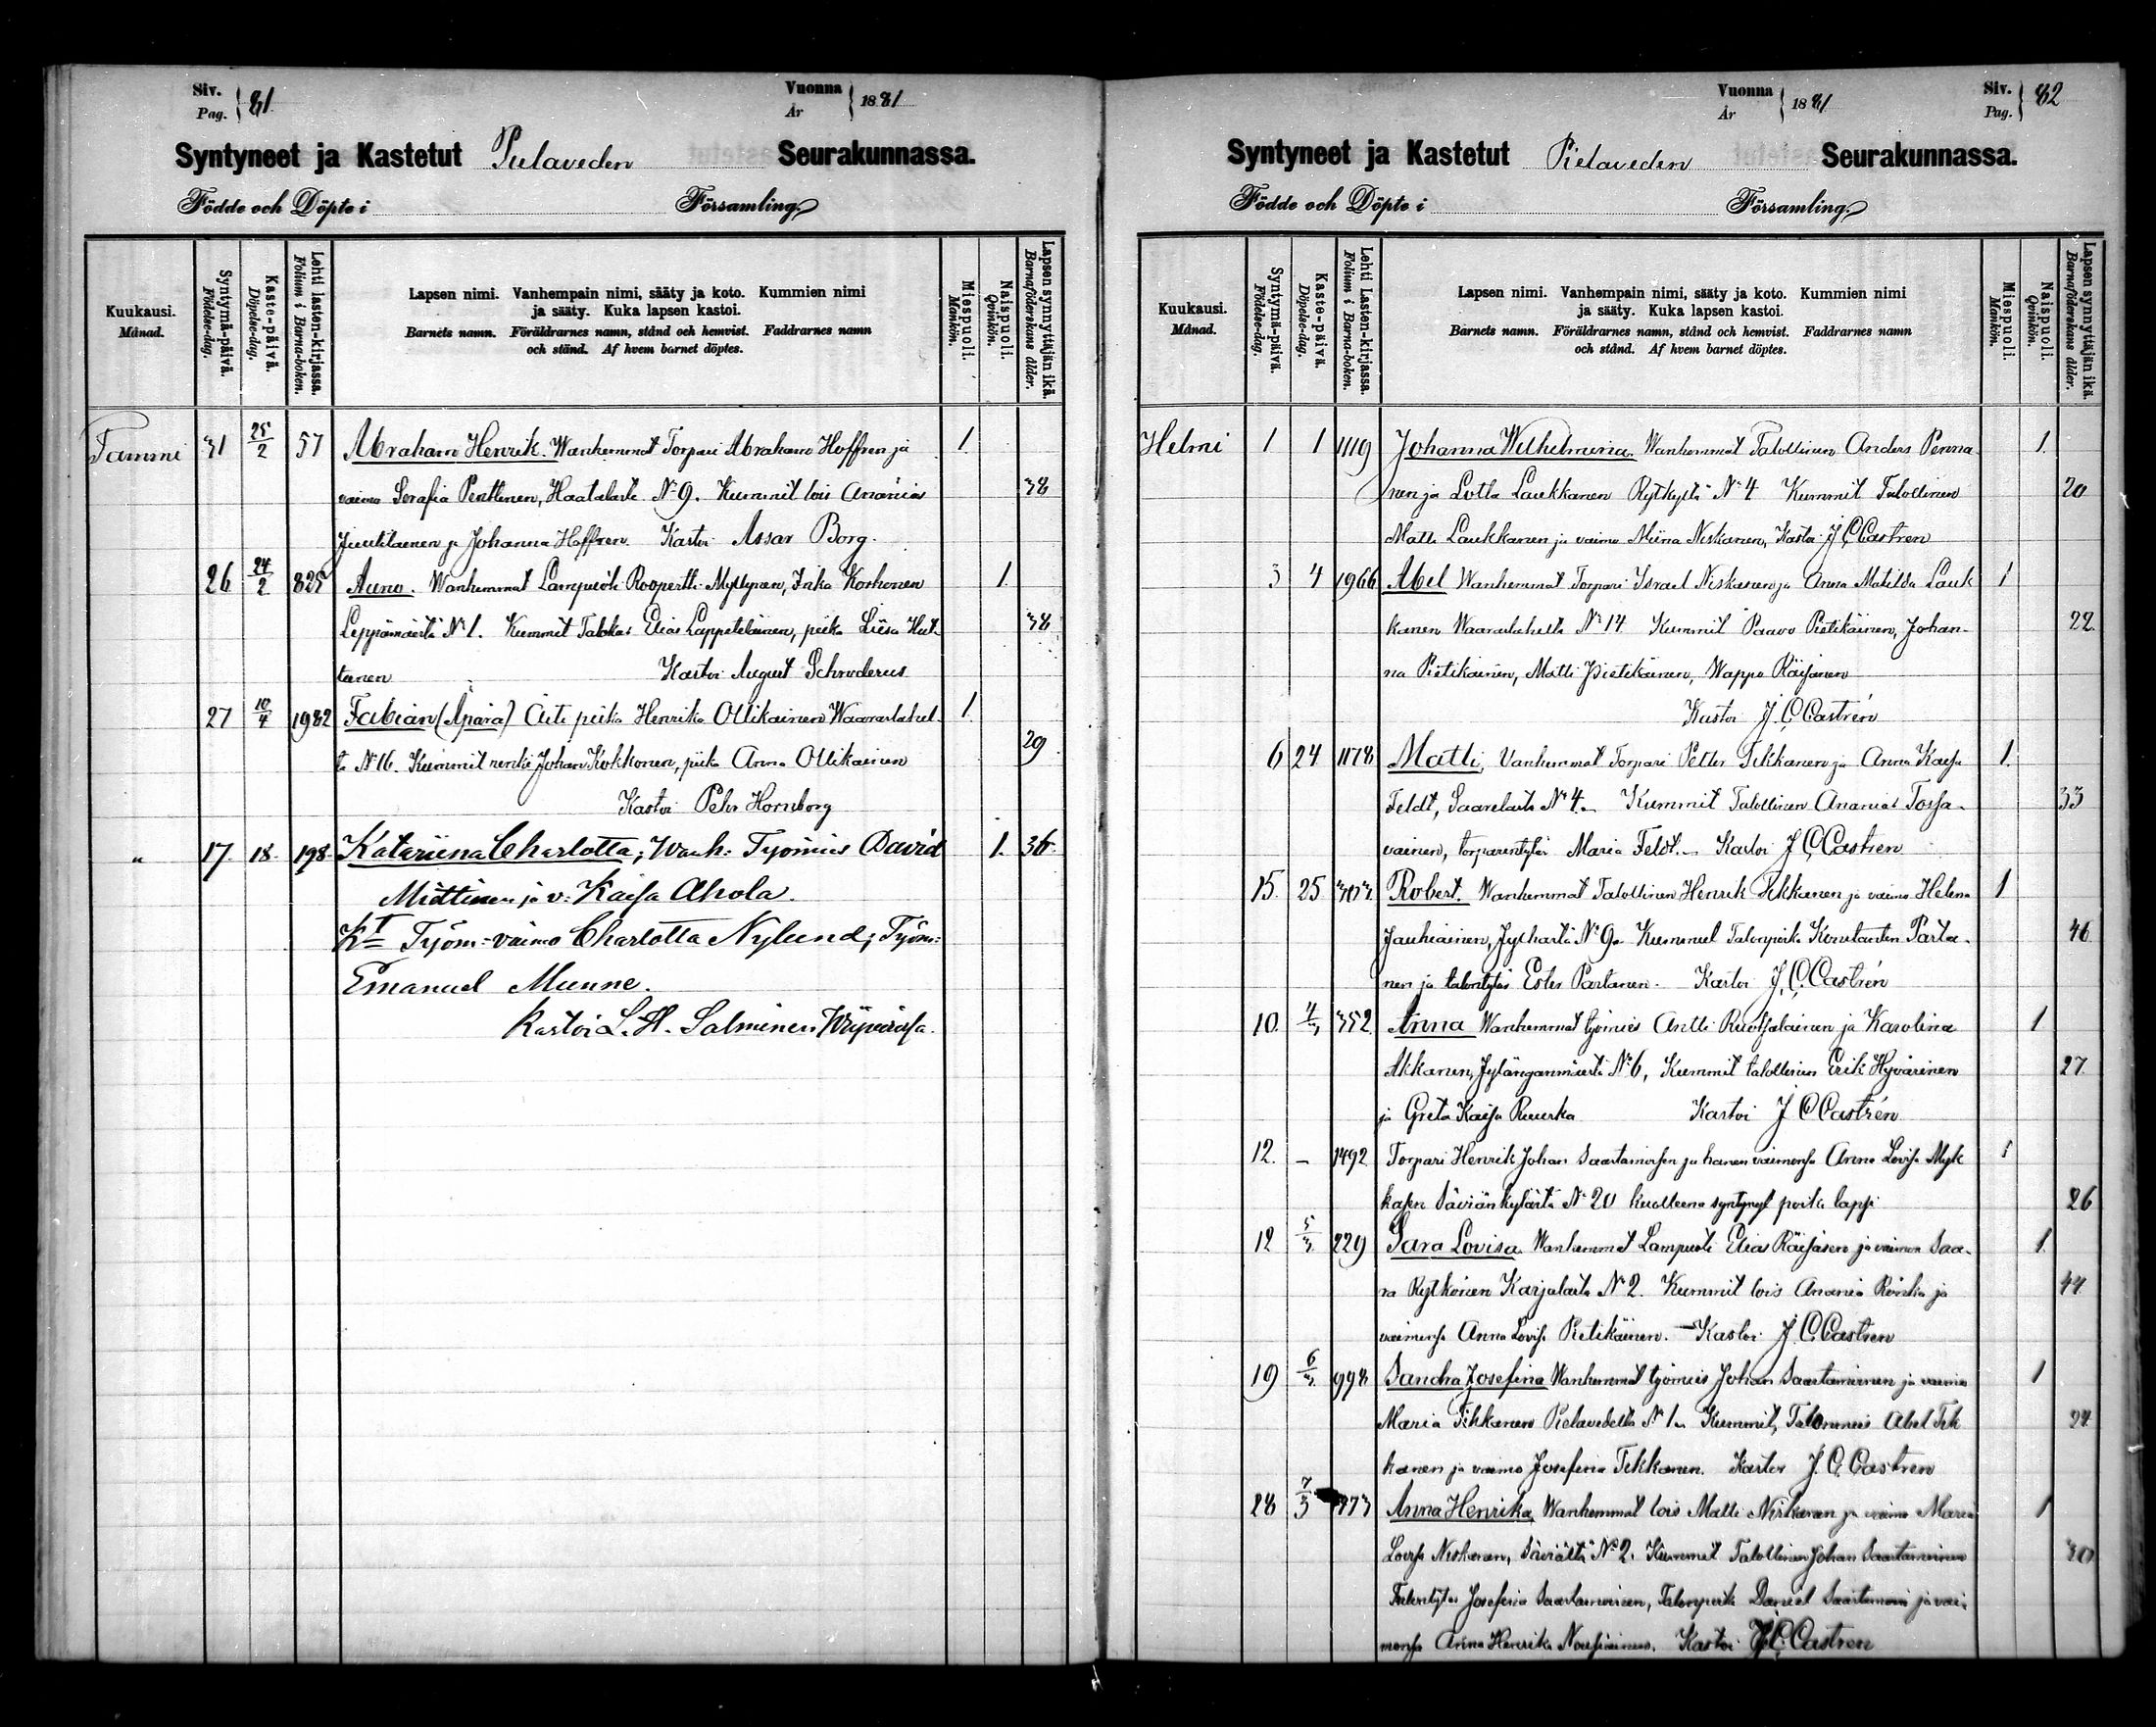 Siv. Pag. 81
Vuonna År 1881
Syntyneet ja Kastetut Pielaveden Seurakunnassa.
Födde och Döpte i Församling.
Kuukausi. Månad.
Syntymä-päivä. Födelse-dag.
Kaste-päivä. Döpelse-dag.
Lehti lasten-kirjassa. Folium i Barna-boken.
Lapsen nimi. Vanhempain nimi, sääty ja koto. Kummien nimi
ja sääty. Kuka lapsen kastoi.
Barnets namn. Föräldrarnes namn, stånd och hemvist. Faddrarnes namn
och stånd. Af hvem barnet döptes.
Miespuoli. Mankön.
Naispuoli. Qvinkön.
Lapsen synnyttäjän ikä. Barnaföderskans ålder.
Tammi 31 25/2 57 Abraham Henrik. Wanhemmat Torpari Abraham Hoffren ja 1.
vaimo Serafia Penttinen, Haatalasta No 9. Kummit lois Anania 38
Juutilainen ja Johanna Hoffren. Kastoi Assar Borg.
26 24/2 825 Auno. Wanhemmat Lampuoti Roopertti Myllynen, Inka Korhonen 1.
Leppämäestä No 1. Kummit Talokas Elias Lappeteläinen, piika Liisa Hut- 38
tunen Kastoi August Schroderus
27 10/4 1982 Fabian (Äpärä) Äiti piika Henrika Ollikainen Waaraslahel- 1.
ta No 16. Kummit renki Johan Kokkonen, piika Anna Ollikainen 29
Kastoi Pehr Hornborg
" 17. 18. 198. Katariina Charlotta; Wanh: Työmies David 1. 36.
Miettinen ja v: Kaisa Ahola.
Kt Työm=vaimo Charlotta Nylund; Työm:
Emanuel Munne.
Kastoi L. H. Salminen Wiipurissa.
Vuonna År 1881
Siv. Pag. 82
Syntyneet ja Kastetut Pielaveden Seurakunnassa.
Födde och Döpte i Församling.
Kuukausi. Månad.
Syntymä-päivä. Födelse-dag.
Kaste-päivä. Döpelse-dag.
Lehti Lasten-kirjassa. Folium i Barna-boken.
Lapsen nimi. Vanhempain nimi, sääty ja koto. Kummien nimi
ja sääty. Kuka lapsen kastoi.
Barnets namn. Föräldrarnes namn, stånd och hemvist. Faddrarnes namn
och stånd. Af hvem barnet döptes.
Miespuoli. Mankön.
Naispuoli. Qvinkön.
Lapsen synnyttäjän ikä. Barnaföderskans ålder.
Helmi 1 1 1119 Johanna Wilhelmina. Wanhemmat Talollinen Anders Penna- 1.
nen ja Lotta Laukkanen Rytkyltä No 4 Kummit Talollinen 20
Matti Laukkanen ja vaimo Miina Niskanen, Kastoi J C Castren
3 4 1966 Abel Wanhemmat Torpari Israel Niskanen ja Anna Matilda Lauk 1
kanen Waaraslahelta No 14 Kummit Paavo Pietikäinen, Johan- 22.
na Pietikäinen, Matti Pietikäinen, Wappo Räisänen
Kastoi J. C Castrén
6 24 1178 Matti, Vanhemmat Torpari Petter Tikkanen ja Anna Kaisa 1.
Feldt, Saarelasta No 4. Kummit Talollinen Ananias Tossa- 33
vainen, torparintytär Maria Feldt. Kastoi J C Castren
15. 25 303. Robert. Wanhemmat Talollinen Henrik Tikkanen ja vaimo Helena 1
Jauhiainen, No 9. Kummit Talonpoika Konstantin Parta- 46
nen ja talontytär Ester Partanen. Kastoi J. C. Castrén
10. 4/3 352. Anna Wanhemmat työmies Antti Ruotsalainen ja Karolina 1.
Akkanen, Jylänganmäestä No 6, Kummit talollinen Erik Hyvärinen 27.
ja Greta Kaisa Ruuska Kastoi J C Castrén
12. - 1492 Torpari Henrik Johan Saastamoisen ja hänen vaimonsa Anna Lovisa Myk 1
käsen Säviänkylästä No 20 kuolleena syntynyt poika lapsi 26
12 5/3 229 Sara Lovisa. Wanhemmat Lampuoti Elias Räisäsen ja vaimon Saa- 1.
ra Rytkönen Karjalasta No 2. Kummit lois Anania ja 44.
vaimonsa Anna Lovisa Pietikäinen. Kastoi J. C. Castren
19 6/3 998 Sandra Josefina Wanhemmat työmies Johan Saastamoinen ja vaimo 1
Maria Tikkanen Pielavedeltä No 1. Kummit, Talonmies Abel Tik 24
kanen ja vaimo Josefina Tikkanen. Kastoi J. C. Castren
28 7/3 Anna Henrika, Wanhemmat lois Matti Niskanen ja vaimo Maria 1
Lovisa Niskanen, Säviältä No 2. Kummit Talollinen Johan Saastamoinen 30
Talontytär Josefina Saastamoinen, Talonpoika Daniel Saastamoinen ja vai-
monsa Anna Henrika Nousiainen. Kastoi J. C. Castren